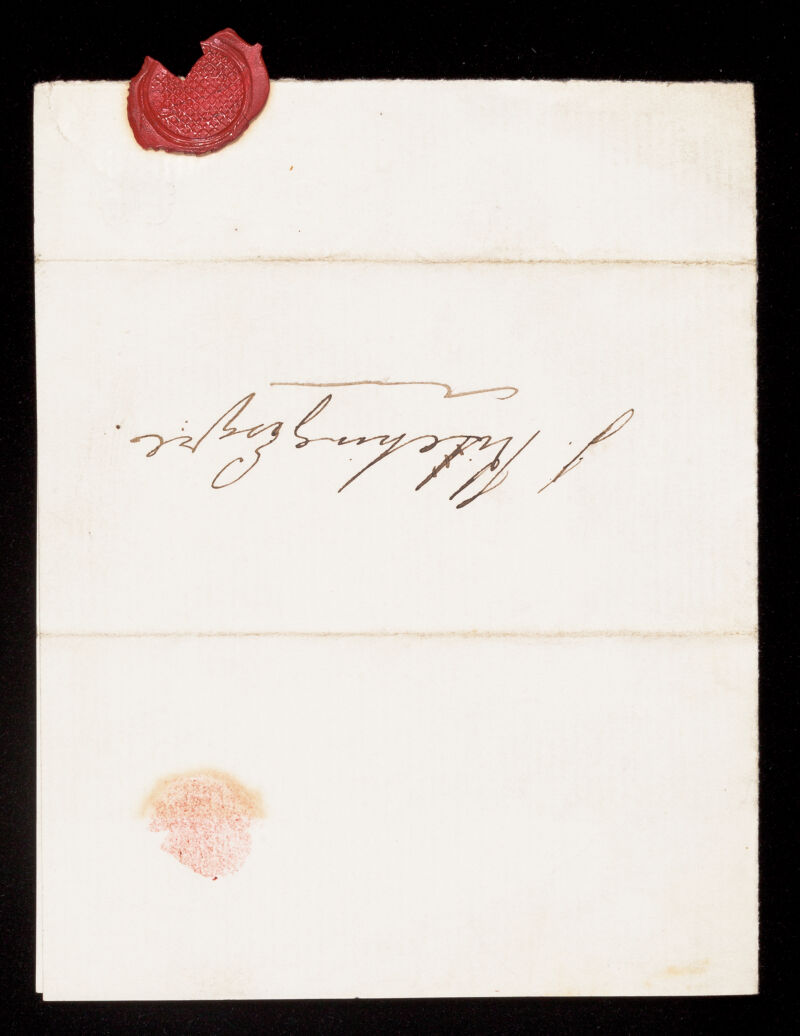 J. Kitching Esqre.